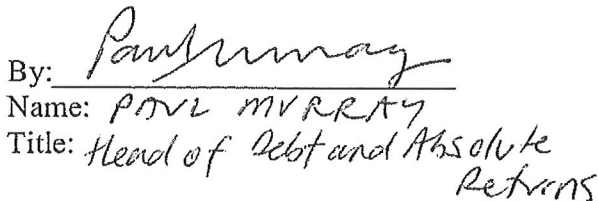 By: Paul Murray
Name: PAUL MURRAY
Title: Head of Debt and Absolute
Returns